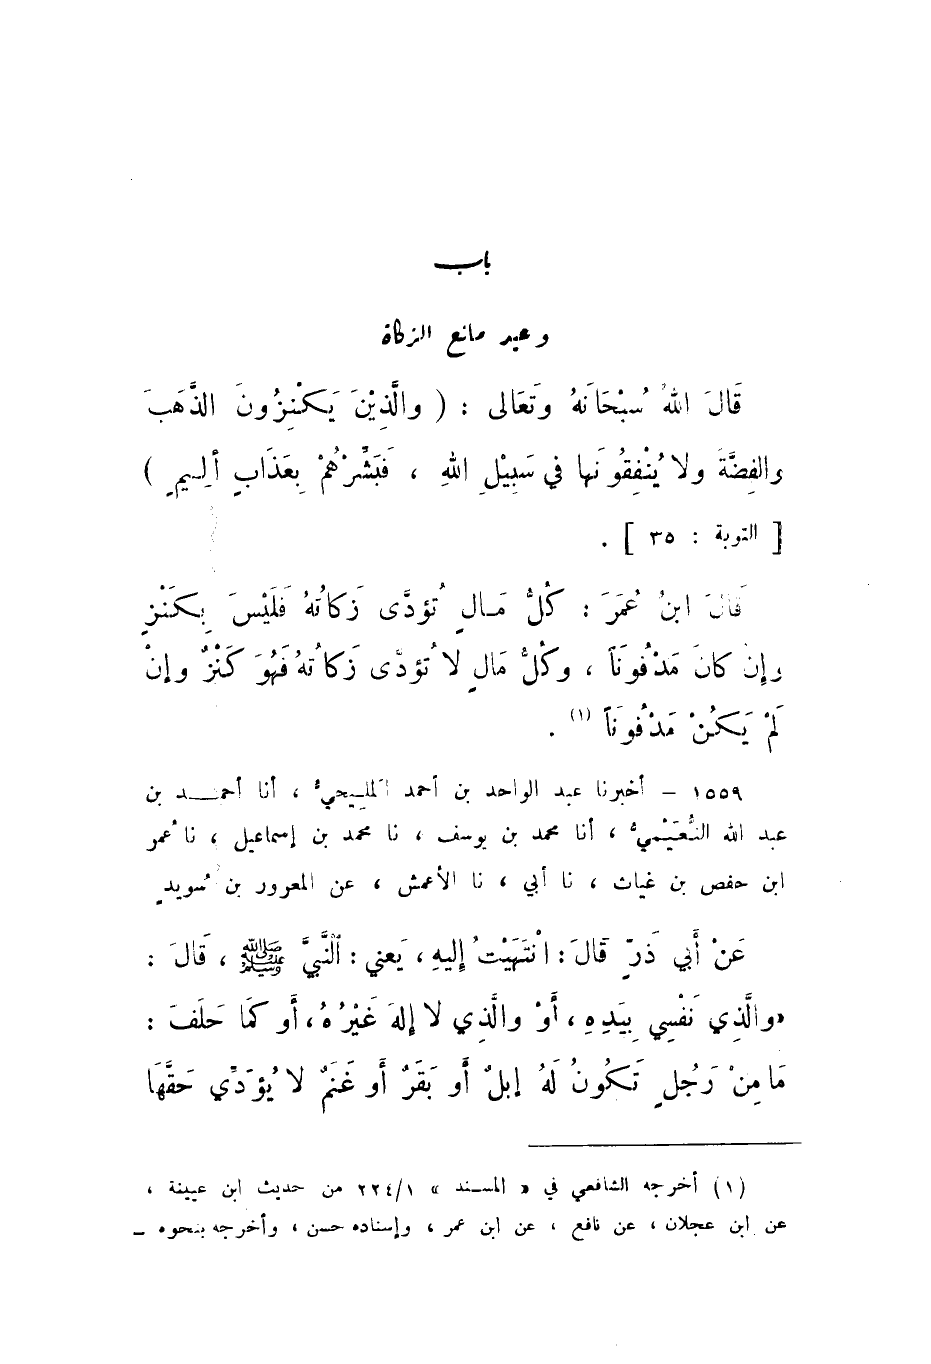 باب
وعيد مانع الزكاة
قَالَ اللهُ سُبْحَانَهُ وَتَعَالى : ( والَّذِيْنَ يَكْنِزُونَ الذَّهَبَ
والفِضَّةَ ولا يُنْفِقُونَها في سَبِيْلِ اللهِ ، فَبَشِّرْهُمْ بِعَذَابٍ أليمٍ )
[ التوبة : ٣٥ ] .
قَالَ ابنُ عُمَرَ : كُلُّ مَالٍ تُؤدَّى زَكاتُهُ فَلَيْسَ بِكَنْزٍ
وإِن كانَ مَدْفُونَاً ، وكُلُّ مَالٍ لا تُؤدَّى زَكاتُهُ فَهُوَ كَنْزٌ وإنْ
لَمْ يَكُنْ مَدْفُونَاً (١) .
١٥٥٩ – أخبرنا عبد الواحد بن أحمد المَليحيُّ ، أنا أحمد بن
عبد الله النُّعَيْمِيُّ ، أنا محمد بن يوسف ، نا محمد بن إسماعيل ، نا عُمر
ابن حفص بن غياث ، نا أبي ، نا الأعمش ، عن المعرور بن سُويدٍ
عَنْ أبي ذَرٍّ قَالَ : انْتَهَيْتُ إلَيهِ ، يَعني : النَّبيَّ ﷺ ، قَالَ :
«والَّذِي نَفْسِي بِيَدِهِ ، أوْ والَّذِي لا إلهَ غَيْرُهُ ، أَو كَمَا حَلَفَ :
مَا مِنْ رَجُلٍ تَكُونُ لَهُ إبلٌ أو بَقَرٌ أو غَنَمٌ لا يُؤَدِّي حَقَّهَا
(١) أخرجه الشافعي في « المسند » ٢٢٤/١ من حديث ابن عيينة ،
عن ابن عجلان ، عن نافع ، عن ابن عمر ، وإسناده حسن ، وأخرجه بنحوه –